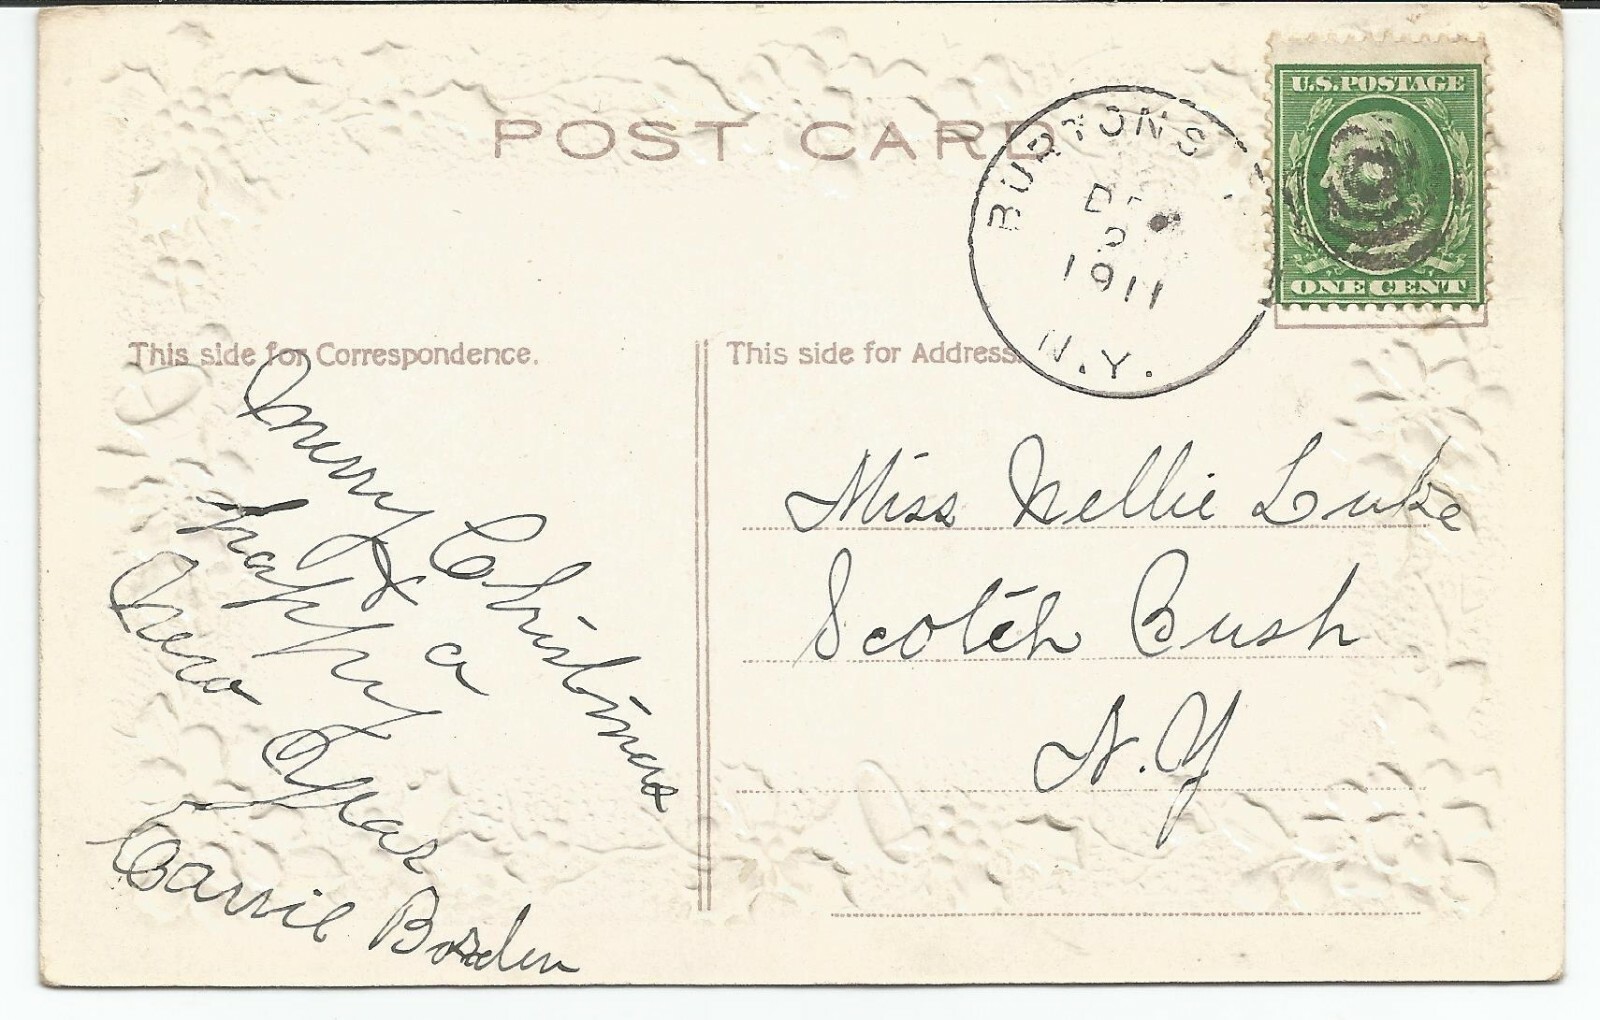 POST CARD
BURTONS
2
1911
N.Y.
U.S. POSTAGE
ONE CENT
This side for Correspondence.
This side for Address.
Merry Christmas
& a
happy
New Year
Carrie Borden
Miss Nellie Luke
Scotch Bush
N.Y